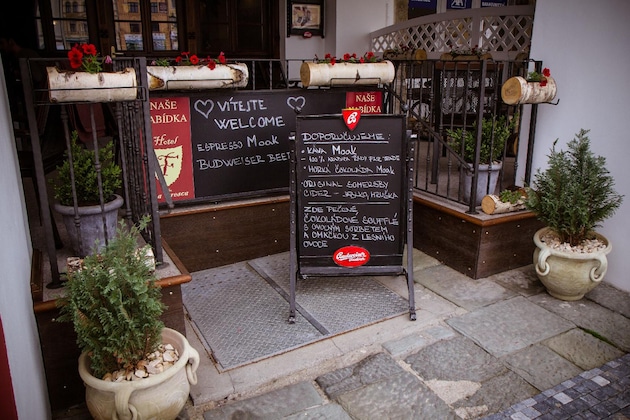 NAŠE
NABÍDKA
Hotel
VÍTEJTE
WELCOME
ESPRESSO Moak
BUDWEISER BEER
NAŠE
NABÍDKA
DOPORUČUJEME:
- KÁVA Moak
- HORKÁ ČOKOLÁDA Moak
ORIGINAL SOMERSBY
CIDER - JABLKO, HRUŠKA
ZDE PEČENÉ,
ČOKOLÁDOVÉ SOUFFLÉ
S OVOCNÝM SORBETEM
A OMÁČKOU Z LESNÍHO
OVOCE
Budweiser
AXA